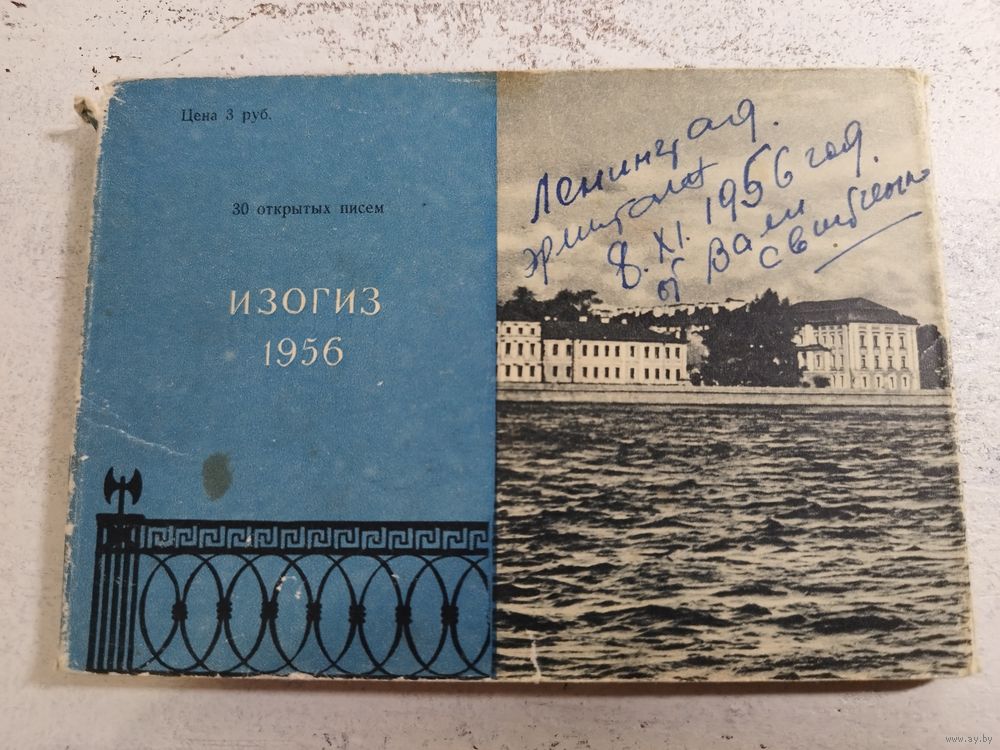 Цена 3 руб.
30 открытых писем
ИЗОГИЗ
1956
Ленинград.
эрмитаж
8.XI.1956 год.
от Вали
www.ay.by